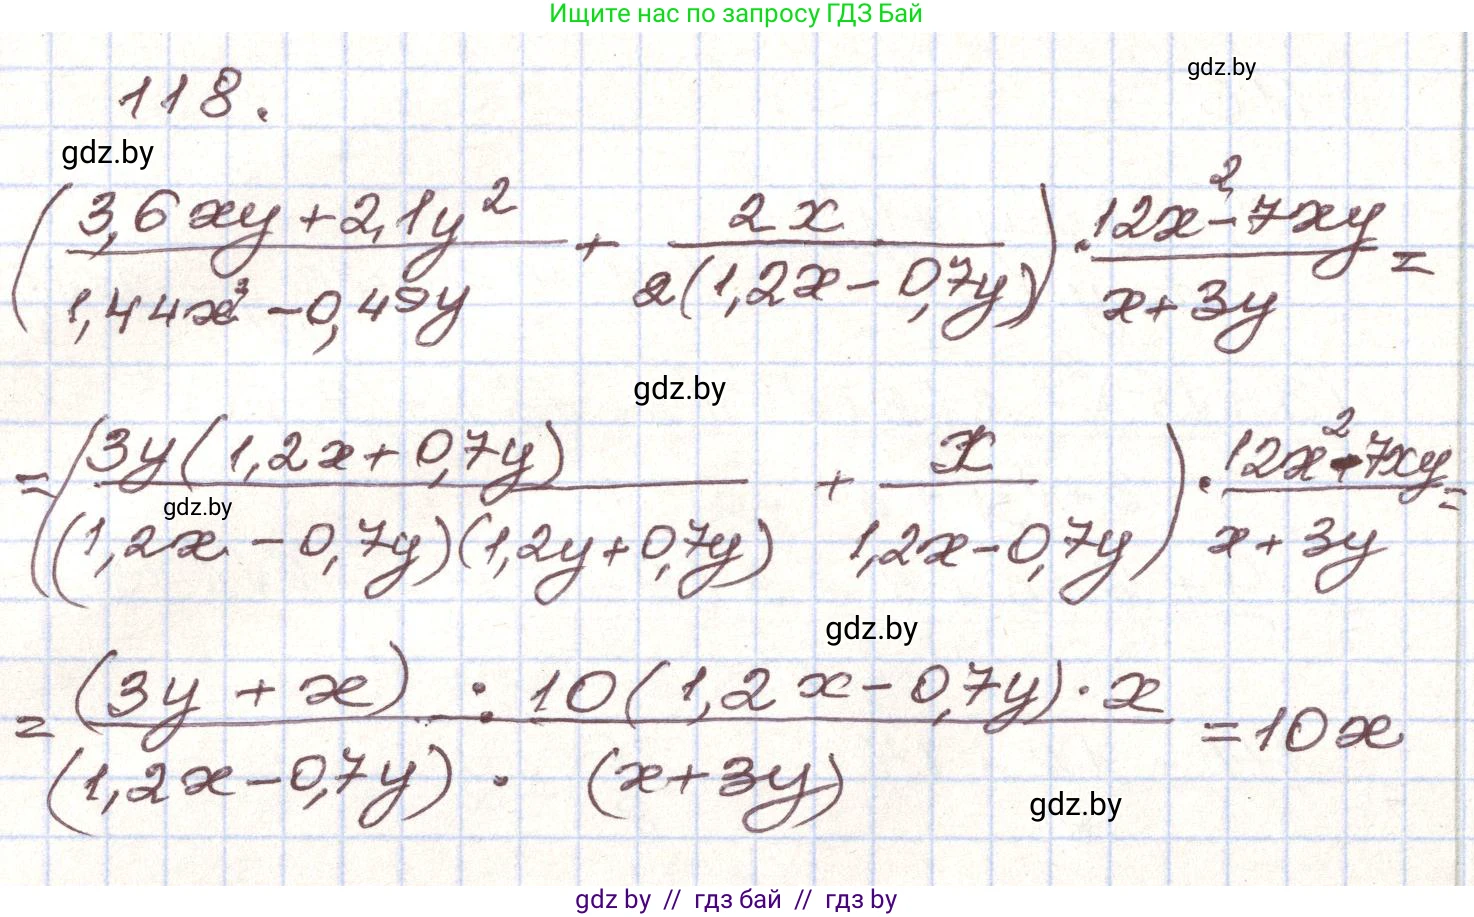 Ищите нас по запросу ГДЗ Бай
gdz.by
118.
gdz.by
( (3,6xy + 2,1y²) / (1,44x³ - 0,49y) + 2x / (2(1,2x - 0,7y)) ) · (12x² - 7xy) / (x + 3y) =
gdz.by
= ( (3y(1,2x + 0,7y)) / ((1,2x - 0,7y)(1,2y + 0,7y)) + x / (1,2x - 0,7y) ) · (12x² - 7xy) / (x + 3y) =
gdz.by
gdz.by
= ((3y + x) : 10(1,2x - 0,7y) · x) / ((1,2x - 0,7y) · (x + 3y)) = 10x
gdz.by
gdz by // гдз бай // гдз by